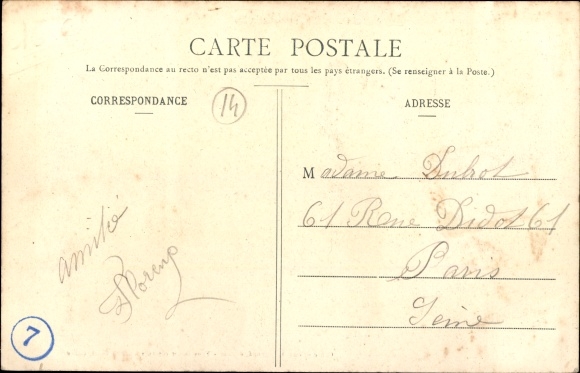 CARTE POSTALE
La Correspondance au recto n'est pas acceptée par tous les pays étrangers. (Se renseigner à la Poste.)
CORRESPONDANCE
14
amitié
7
ADRESSE
Madame Dubrot
61 Rue Didot 61
Paris
Seine